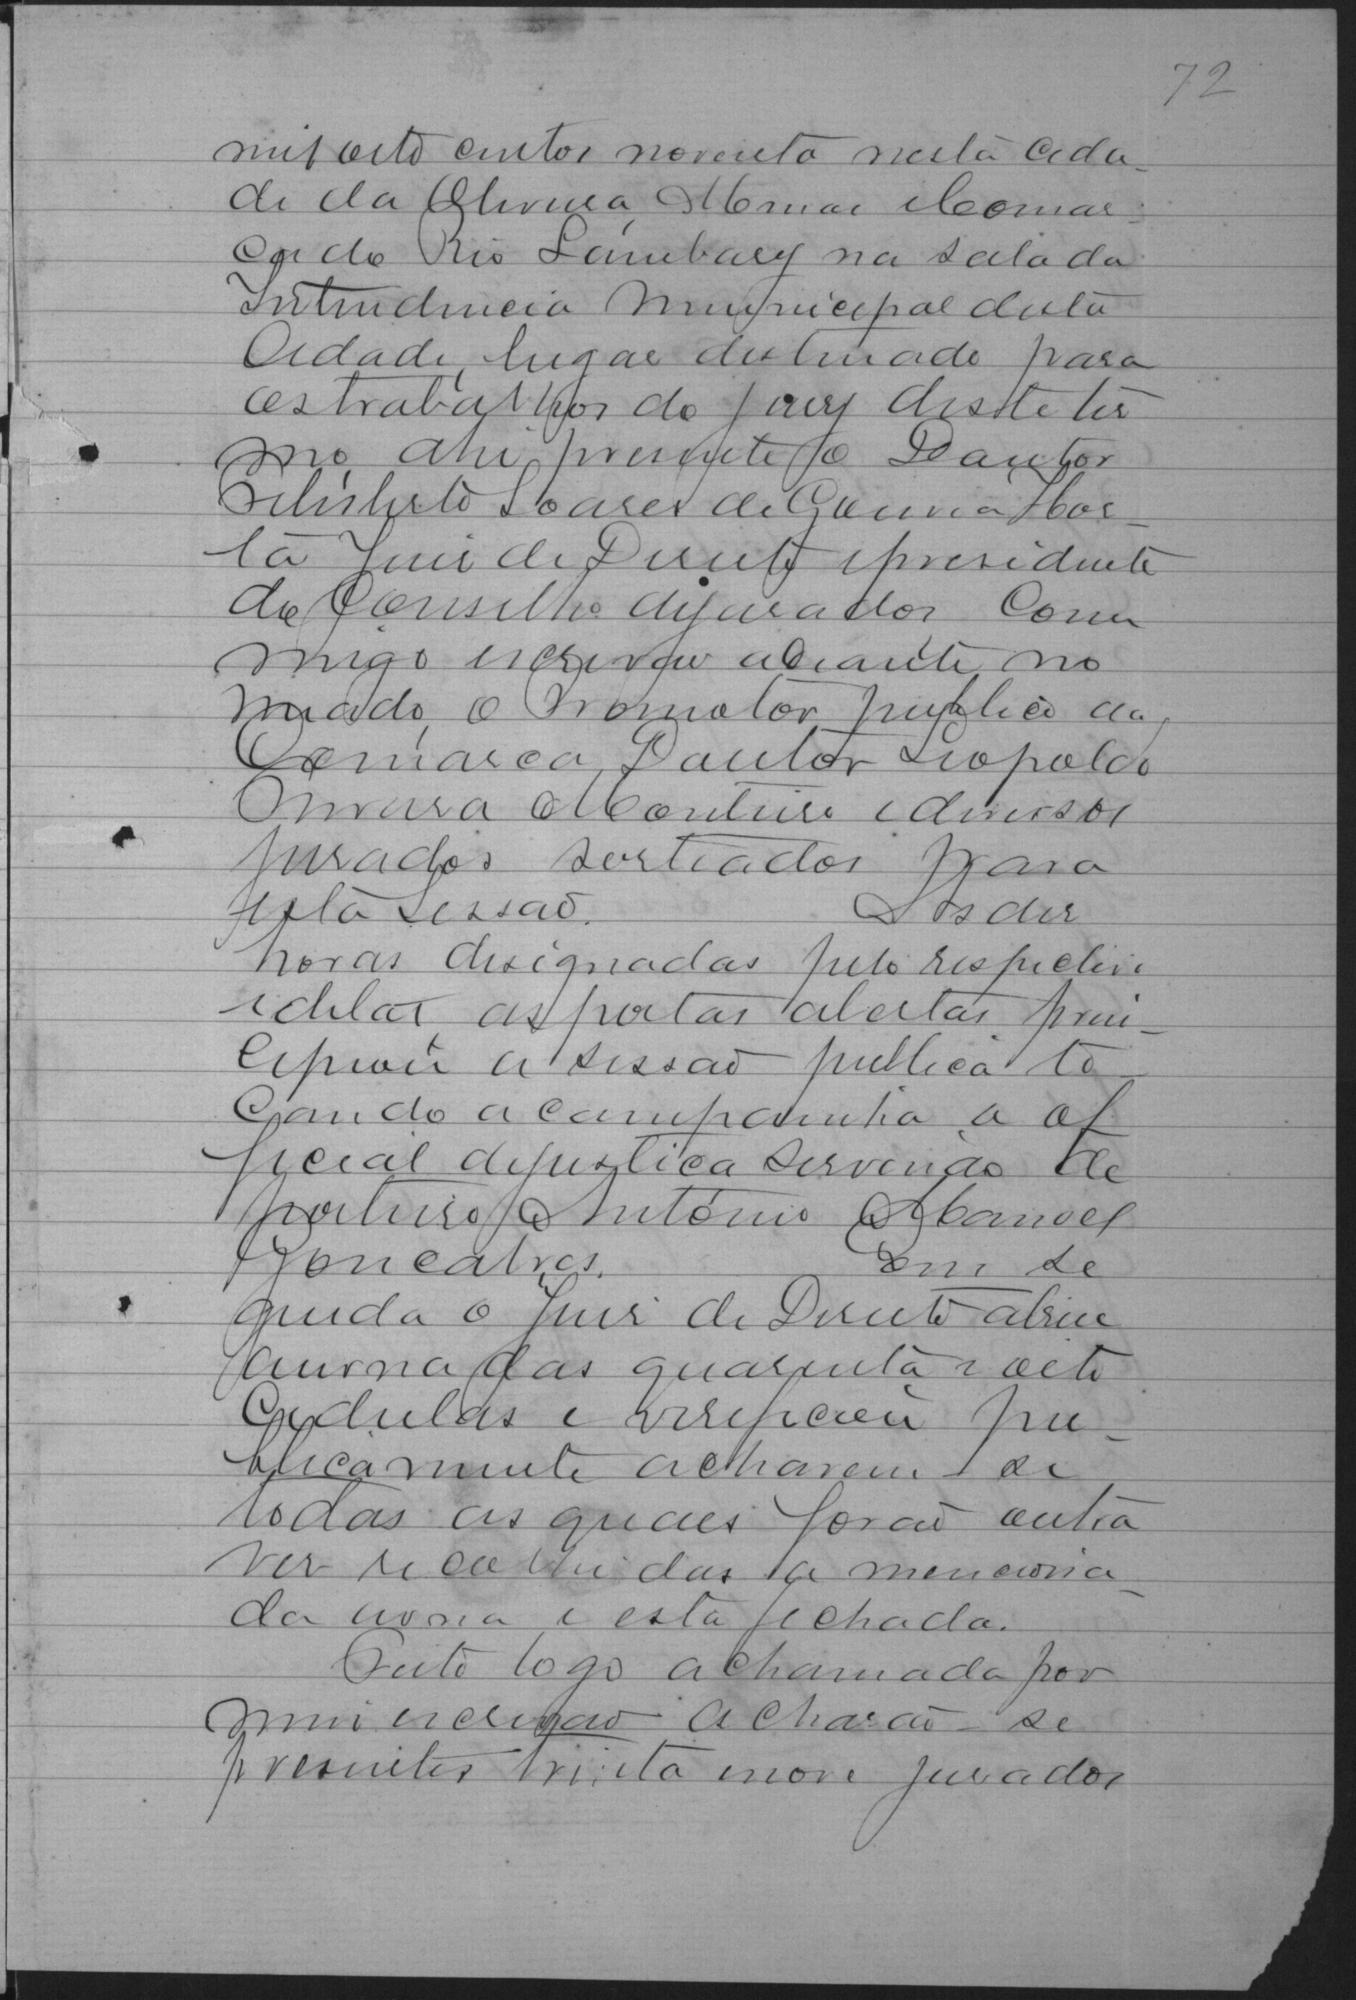 72
mil oito centos noventa nesta cida-
de da Oliveira, Termo e Comar-
ca do Rio Lambary na sala da
Intendencia Municipal desta
Cidade, lugar destinado para
os trabalhos do jury deste ter
mo, ahi presente o Doutor
Soares de Gouvea Hor-
ta Juis de Direito e presidente
do Conselho de jurados Com
migo escrivão adiante no
miado, o Promotor publico da
Comarca, Doutor Leopoldo
Monteiro e diversos
jurados sorteados para
esta sessão. As des
horas designadas pelo respectivo
edital, as portas abertas prin-
cipiou a sessão publica to
cando a campainha o of
ficial de justica servindo de
porteiro Antonio Manoel
Goncalves. Em se
guida o Juis de Direito abriu
a urna das quarenta e oito
Cedulas e verificou pu-
blicamente acharem-se
todas as quaes forão outra
ves recolhidas a menciona-
da urna e esta fechada.
Feito logo a chamada por
mim escrivão acharão-se
presentes trinta e nove jurados